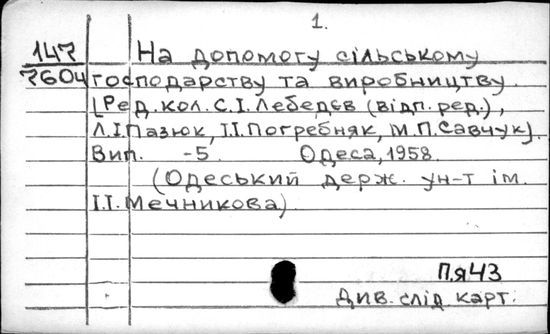 1.
147
7604
На допомогу сільському
господарству та виробництву.
[Ред. кол. С.І. Лебедєв (відп. ред.),
Л.І. Пазюк, І.І. Погребняк, М.П. Савчук].
Вип. -5. Одеса, 1958.
(Одеський держ. ун-т ім.
І.І. Мечникова)
П.я 43
Див. слід. карт.